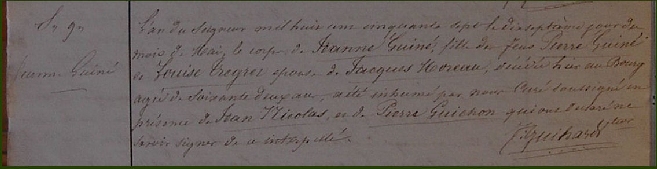 N. 9.
Jeanne Guiné
L'an du Seigneur mil huit cent cinquante sept le dixseptième jour du
mois de Mai, le corps de Jeanne Guiné, fille de feus Pierre Guiné
et Louise épouse de Jacques Moreau, décédée hier au Bourg
agée de soixante deux ans, a été inhumé par nous Curé soussigné en
présence de Jean Nicolas, et de Pierre Guichon qui ont déclaré ne
savoir signer de ce interpelés.